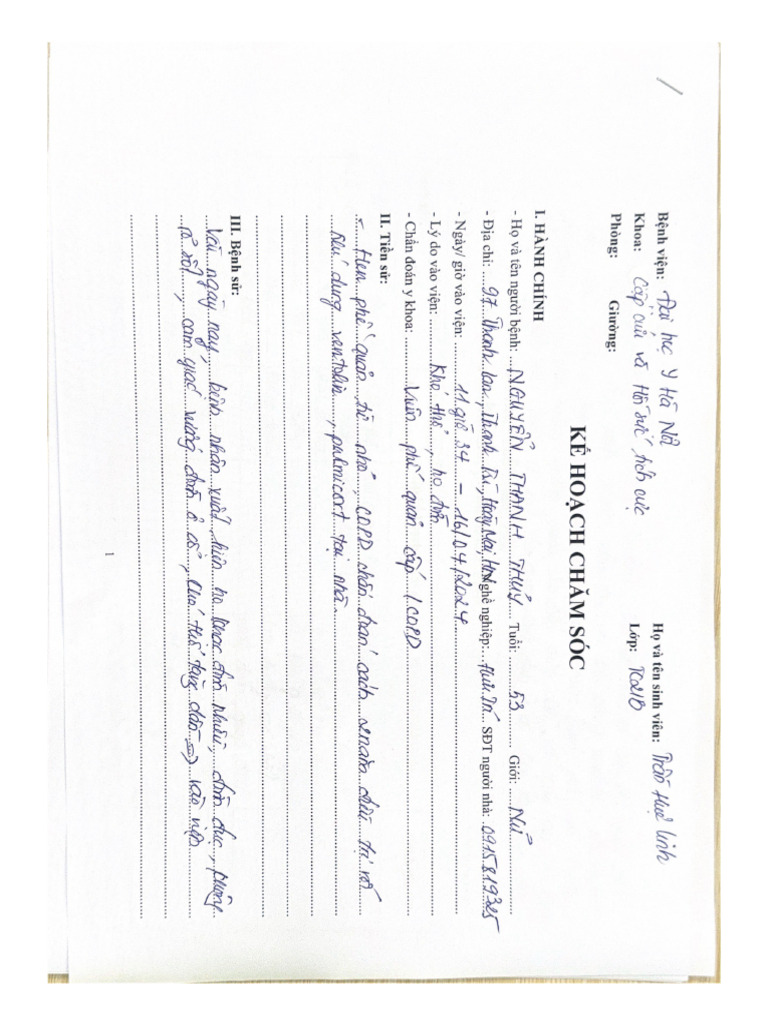 Bệnh viện: Đại học Y Hà Nội
Họ và tên sinh viên: Trần Huệ Linh
Khoa: Cấp cứu và Hồi sức tích cực
Lớp: TC21B
Phòng: Giường:
KẾ HOẠCH CHĂM SÓC
I. HÀNH CHÍNH
- Họ và tên người bệnh: NGUYỄN THANH THUỶ Tuổi: 53 Giới: Nữ
- Địa chỉ: 97 Thanh Lan, Thanh Trì, Hoàng Mai, HN Nghề nghiệp: Hưu trí SĐT người nhà: 0915819325
- Ngày/ giờ vào viện: 11 giờ 34 - 16/04/2024
- Lý do vào viện: Khó thở, ho đờm
- Chẩn đoán y khoa: Viêm phế quản cấp / COPD
II. Tiền sử:
Hen phế quản từ nhỏ, COPD chẩn đoán cách điều trị
dùng ventolin, pulmicort tại nhà
III. Bệnh sử:
Vài ngày nay, bệnh nhân xuất hiện ho khạc đờm nhiều, đờm đục, không
rõ sốt, cảm giác vướng đờm ở cổ, khó thở tăng dần → vào viện
1